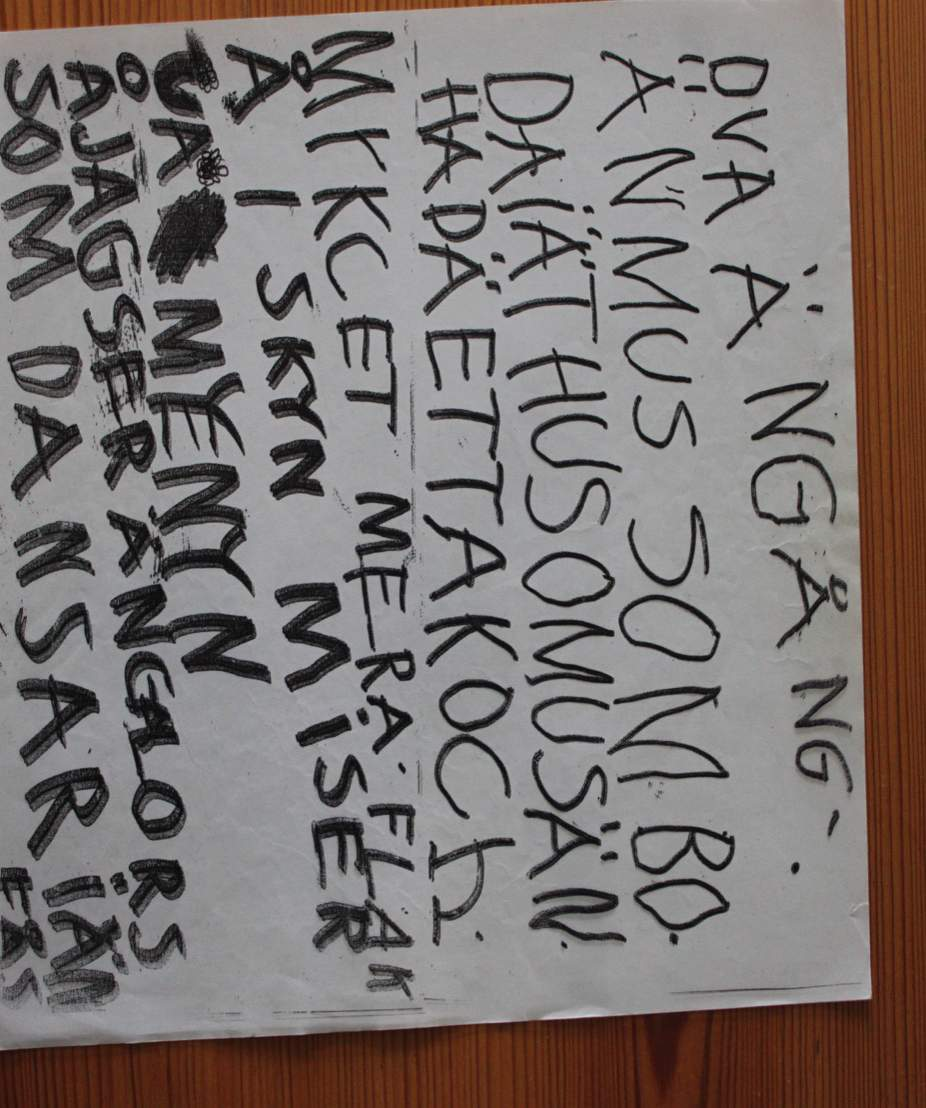 DVA Ä NGÅ NG .
Ä NMUS SOM BO.
DAIÄT HUSOMUSÄN.
HADÄETTAKOCH.
MYKCET MERA
Å I SKYN MISER
MENYN
ÅJAGSER ÄNGLORS
SOM DANSAR IÄN